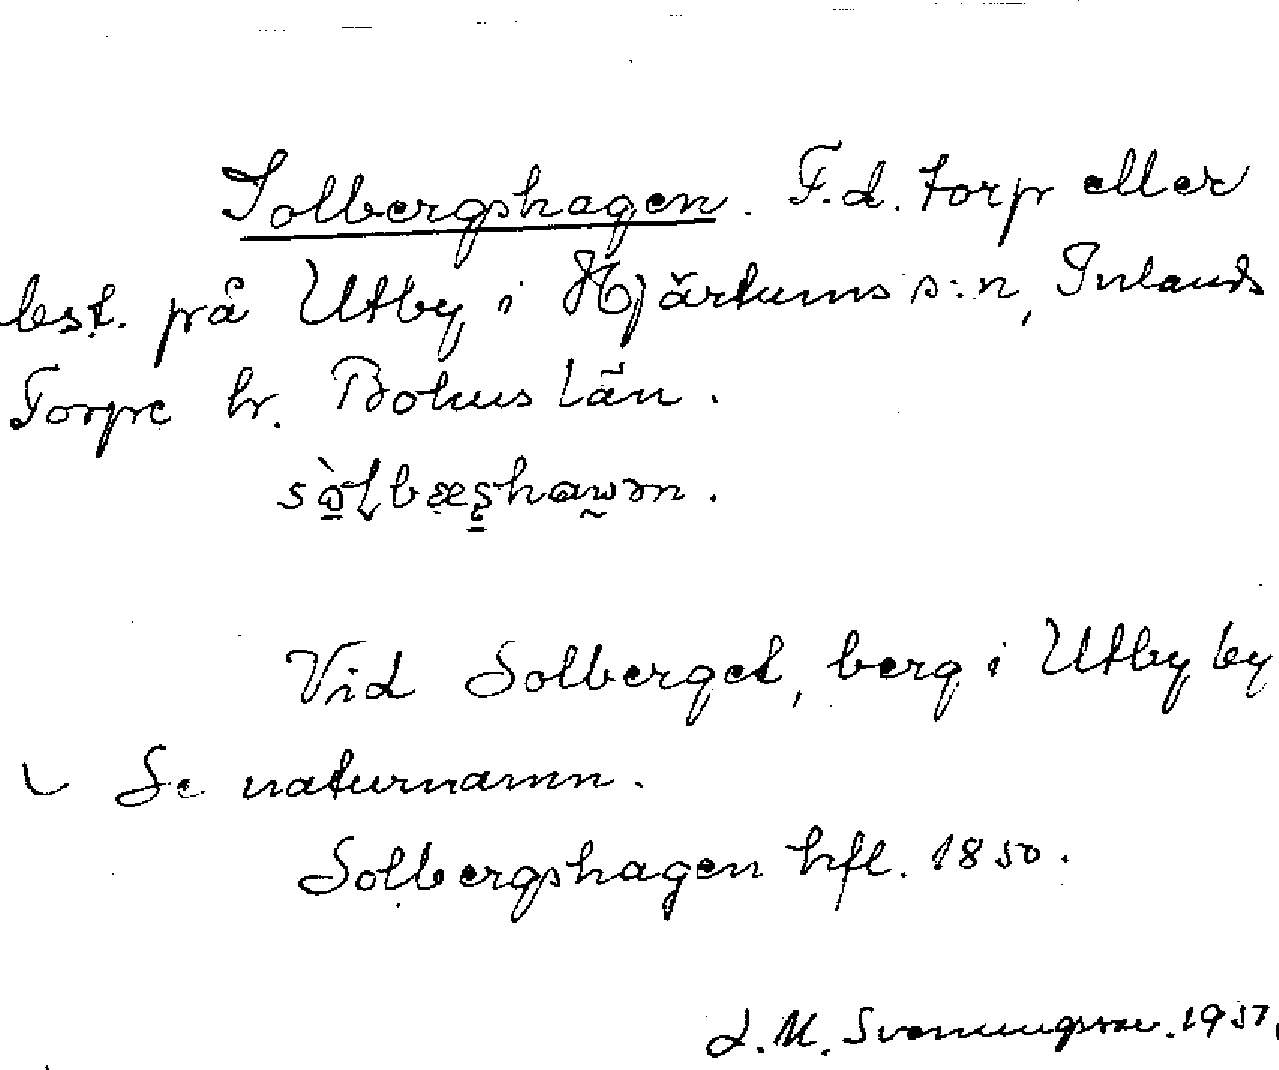 Solbergshagen. F.d. torp eller
lest. på Utby i Hjärtums s:n, Inlands
Torpe hr. Bohus län.
Vid Solberget, berg i Utby by
Se naturnamn.
Solbergshagen hfl. 1850.
J.M. Svenningsson. 1937.